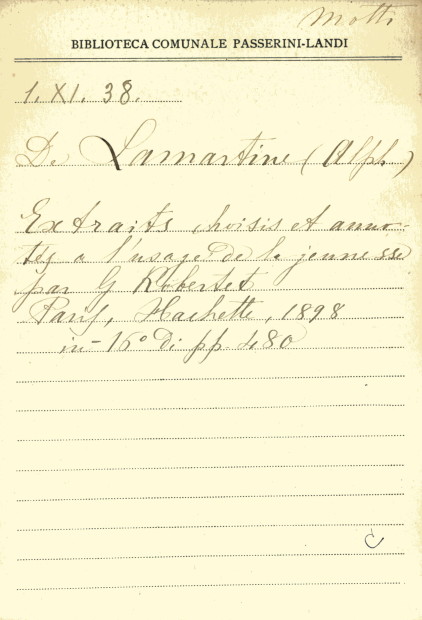 Motti
BIBLIOTECA COMUNALE PASSERINI-LANDI
1. XI. 38.
De Lamartine (Alph.)
Extraits choisis et anno-
tés a l'usage de la jeunesse
par G Robertet
Paris, Hachette, 1898
in-16° di pp 480
C